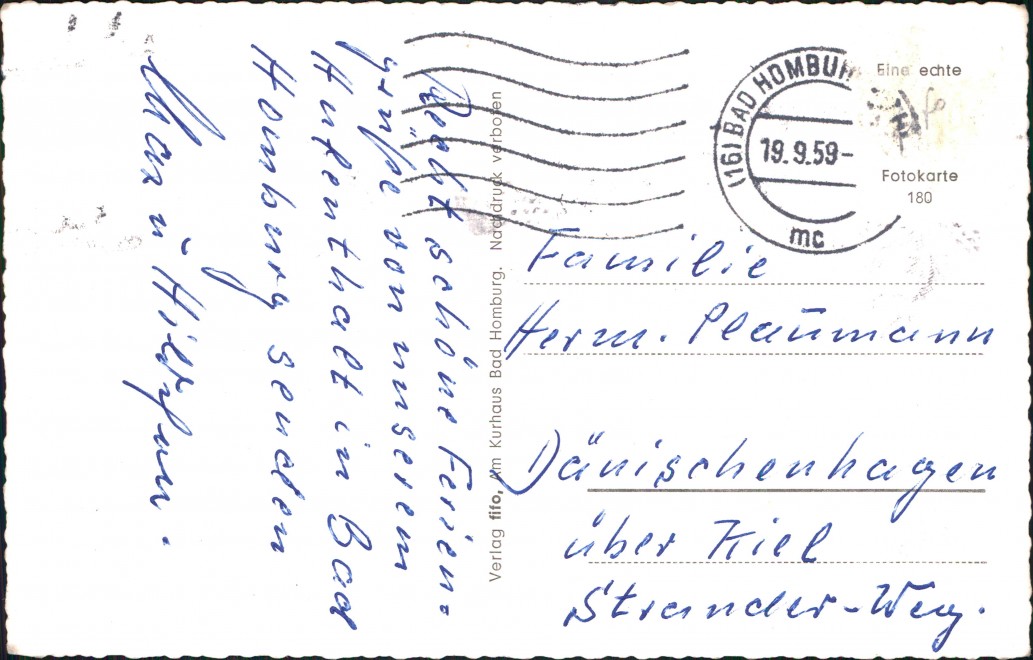 Recht schöne Ferien-
grüße von unserem
Aufenthalt in Bad
Homburg senden
Verlag fifo, Am Kurhaus Bad Homburg. Nachdruck verboten
(16) BAD HOMBUR
19.9.59-
mc
Eine echte
Fotokarte
180
Familie
Herm. Plaumann
Dänischenhagen
über Kiel
Strander-Weg.